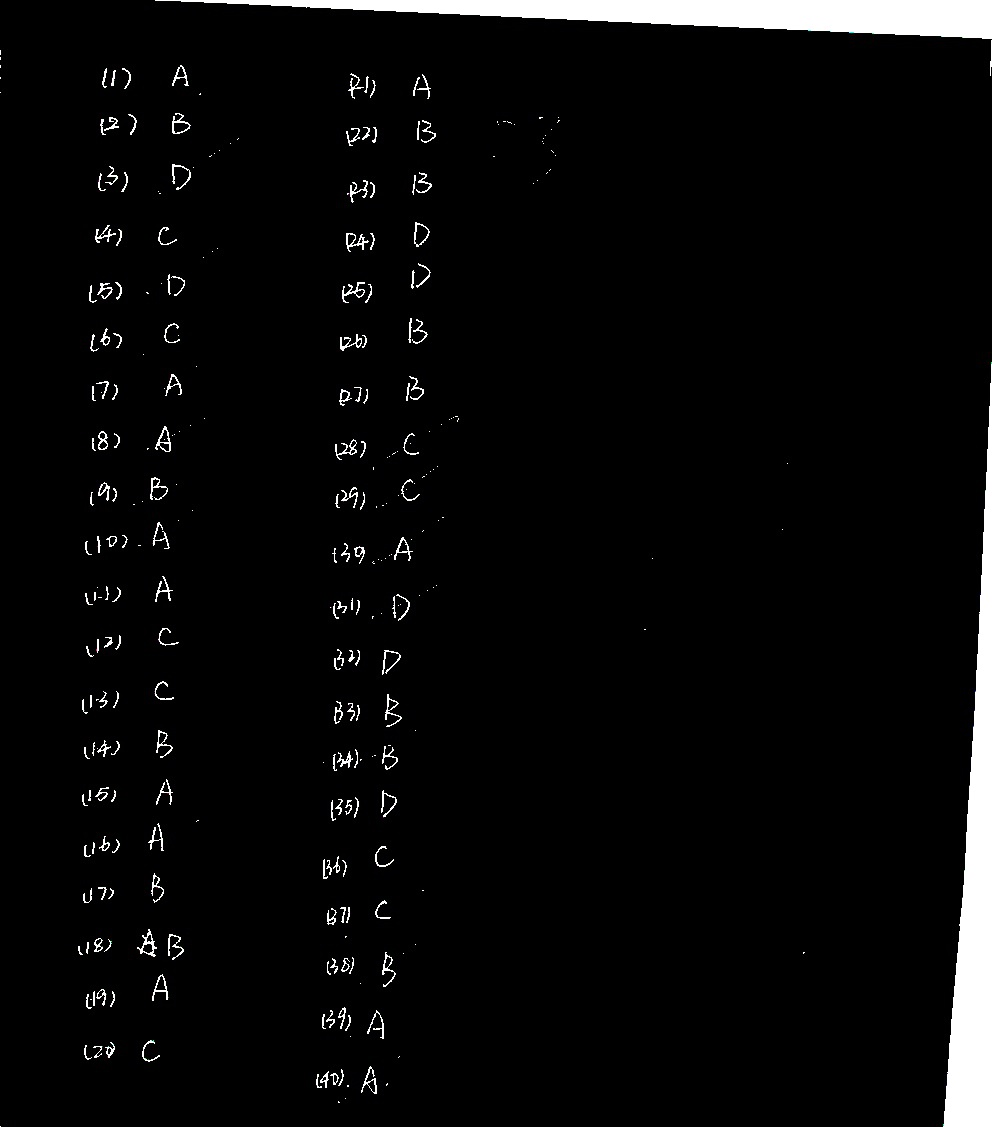 (1) A
(2) B
(3) D
(4) C
(5) D
(6) C
(7) A
(8) A
(9) B
(10) A
(11) A
(12) C
(13) C
(14) B
(15) A
(16) A
(17) B
(18) B
(19) A
(20) C
(21) A
(22) B
(23) B
(24) D
(25) D
(26) B
(27) B
(28) C
(29) C
(30) A
(31) D
(32) D
(33) B
(34) B
(35) D
(36) C
(37) C
(38) B
(39) A
(40) A